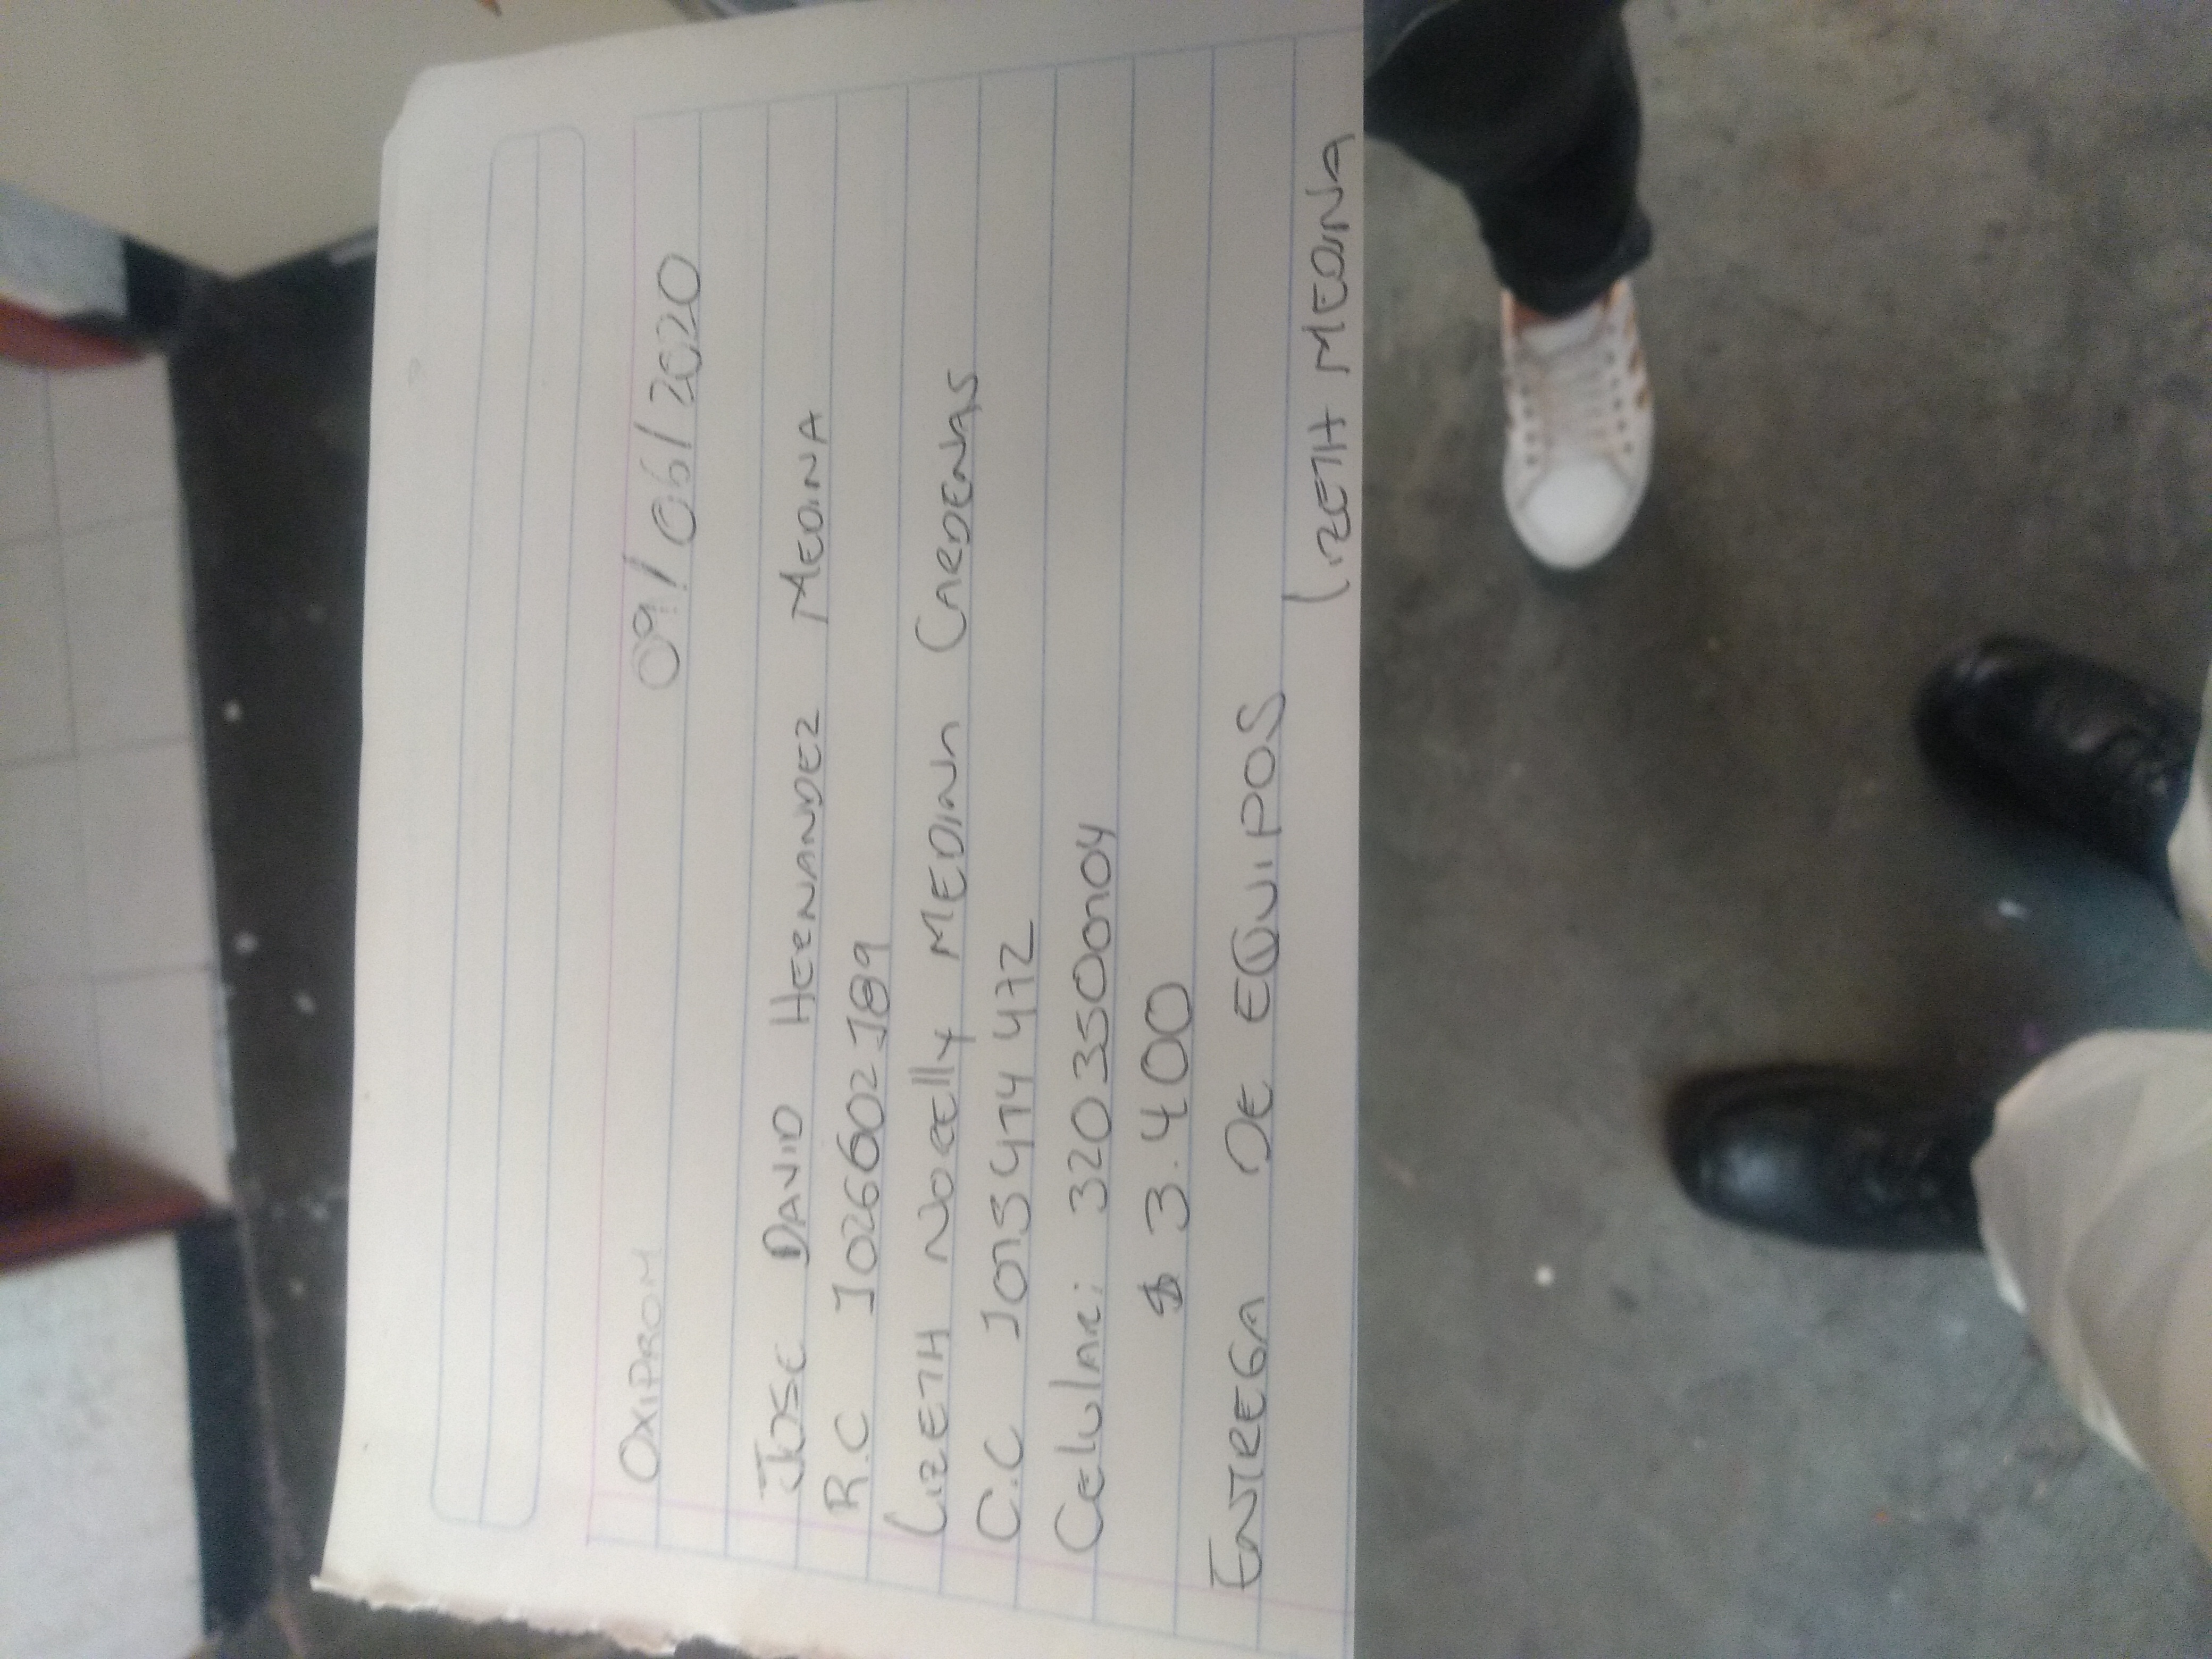 OXIPROM
09/06/2020
JOSE DAVID HERNANDEZ MEDINA
R.C 1026602189
LIZETH NOCELLY MEDINA CARDENAS
C.C
Celular: 320
$ 3.400
ENTREGA DE EQUIPOS
LIZETH MEDINA